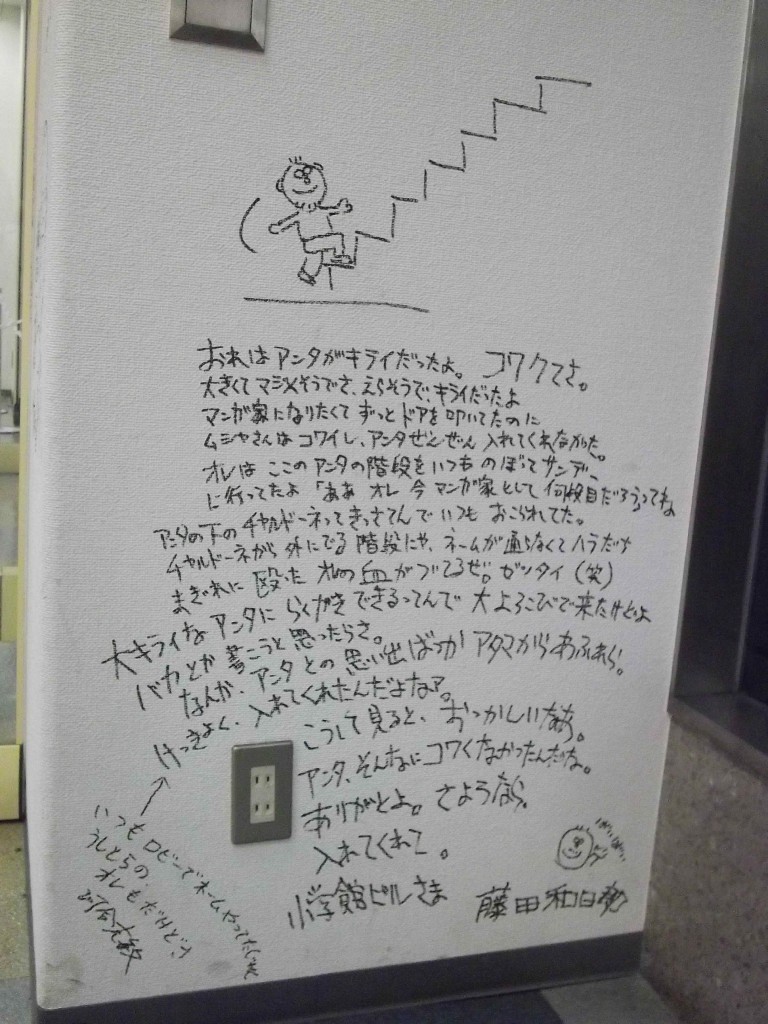 おれはアンタがキライだったよ。 コワクてさ。
大きくてマジメそうでさ、えらそうで、キライだったよ
マンガ家になりたくてずっとドアを叩いてたのに
ムシャさんはコワイし、アンタぜんぜん入れてくれなかった。
オレはここのアンタの階段をいつものぼってサンデー
に行ってたよ「ああ オレ 今 マンガ家として何段目だろう」ってね
アンタの下のチャルドーネってきっさてんでいつもおこられてた。
チャルドーネから外にでる階段にゃ、ネームが通らなくてハラだち
まぎれに殴ったオレの血がついてるぜ。ゼッタイ(笑)
大キライなアンタにらくがきできるってんで大よろこびで来たけどよ
バカとか書こうと思ったらさ。
なんか、アンタとの思い出ばっかアタマからあふれら。
けっきょく、入れてくれたんだよなァ。
こうして見ると、おっかしいなあ。
アンタ、そんなにコワくなかったんだな。
ありがとよ。さようなら。
入れてくれて。
小学館ビルさま
藤田和日郎
ばいばい
いつもロビーでネームやってた
うしとらの。
オレもだけどっ